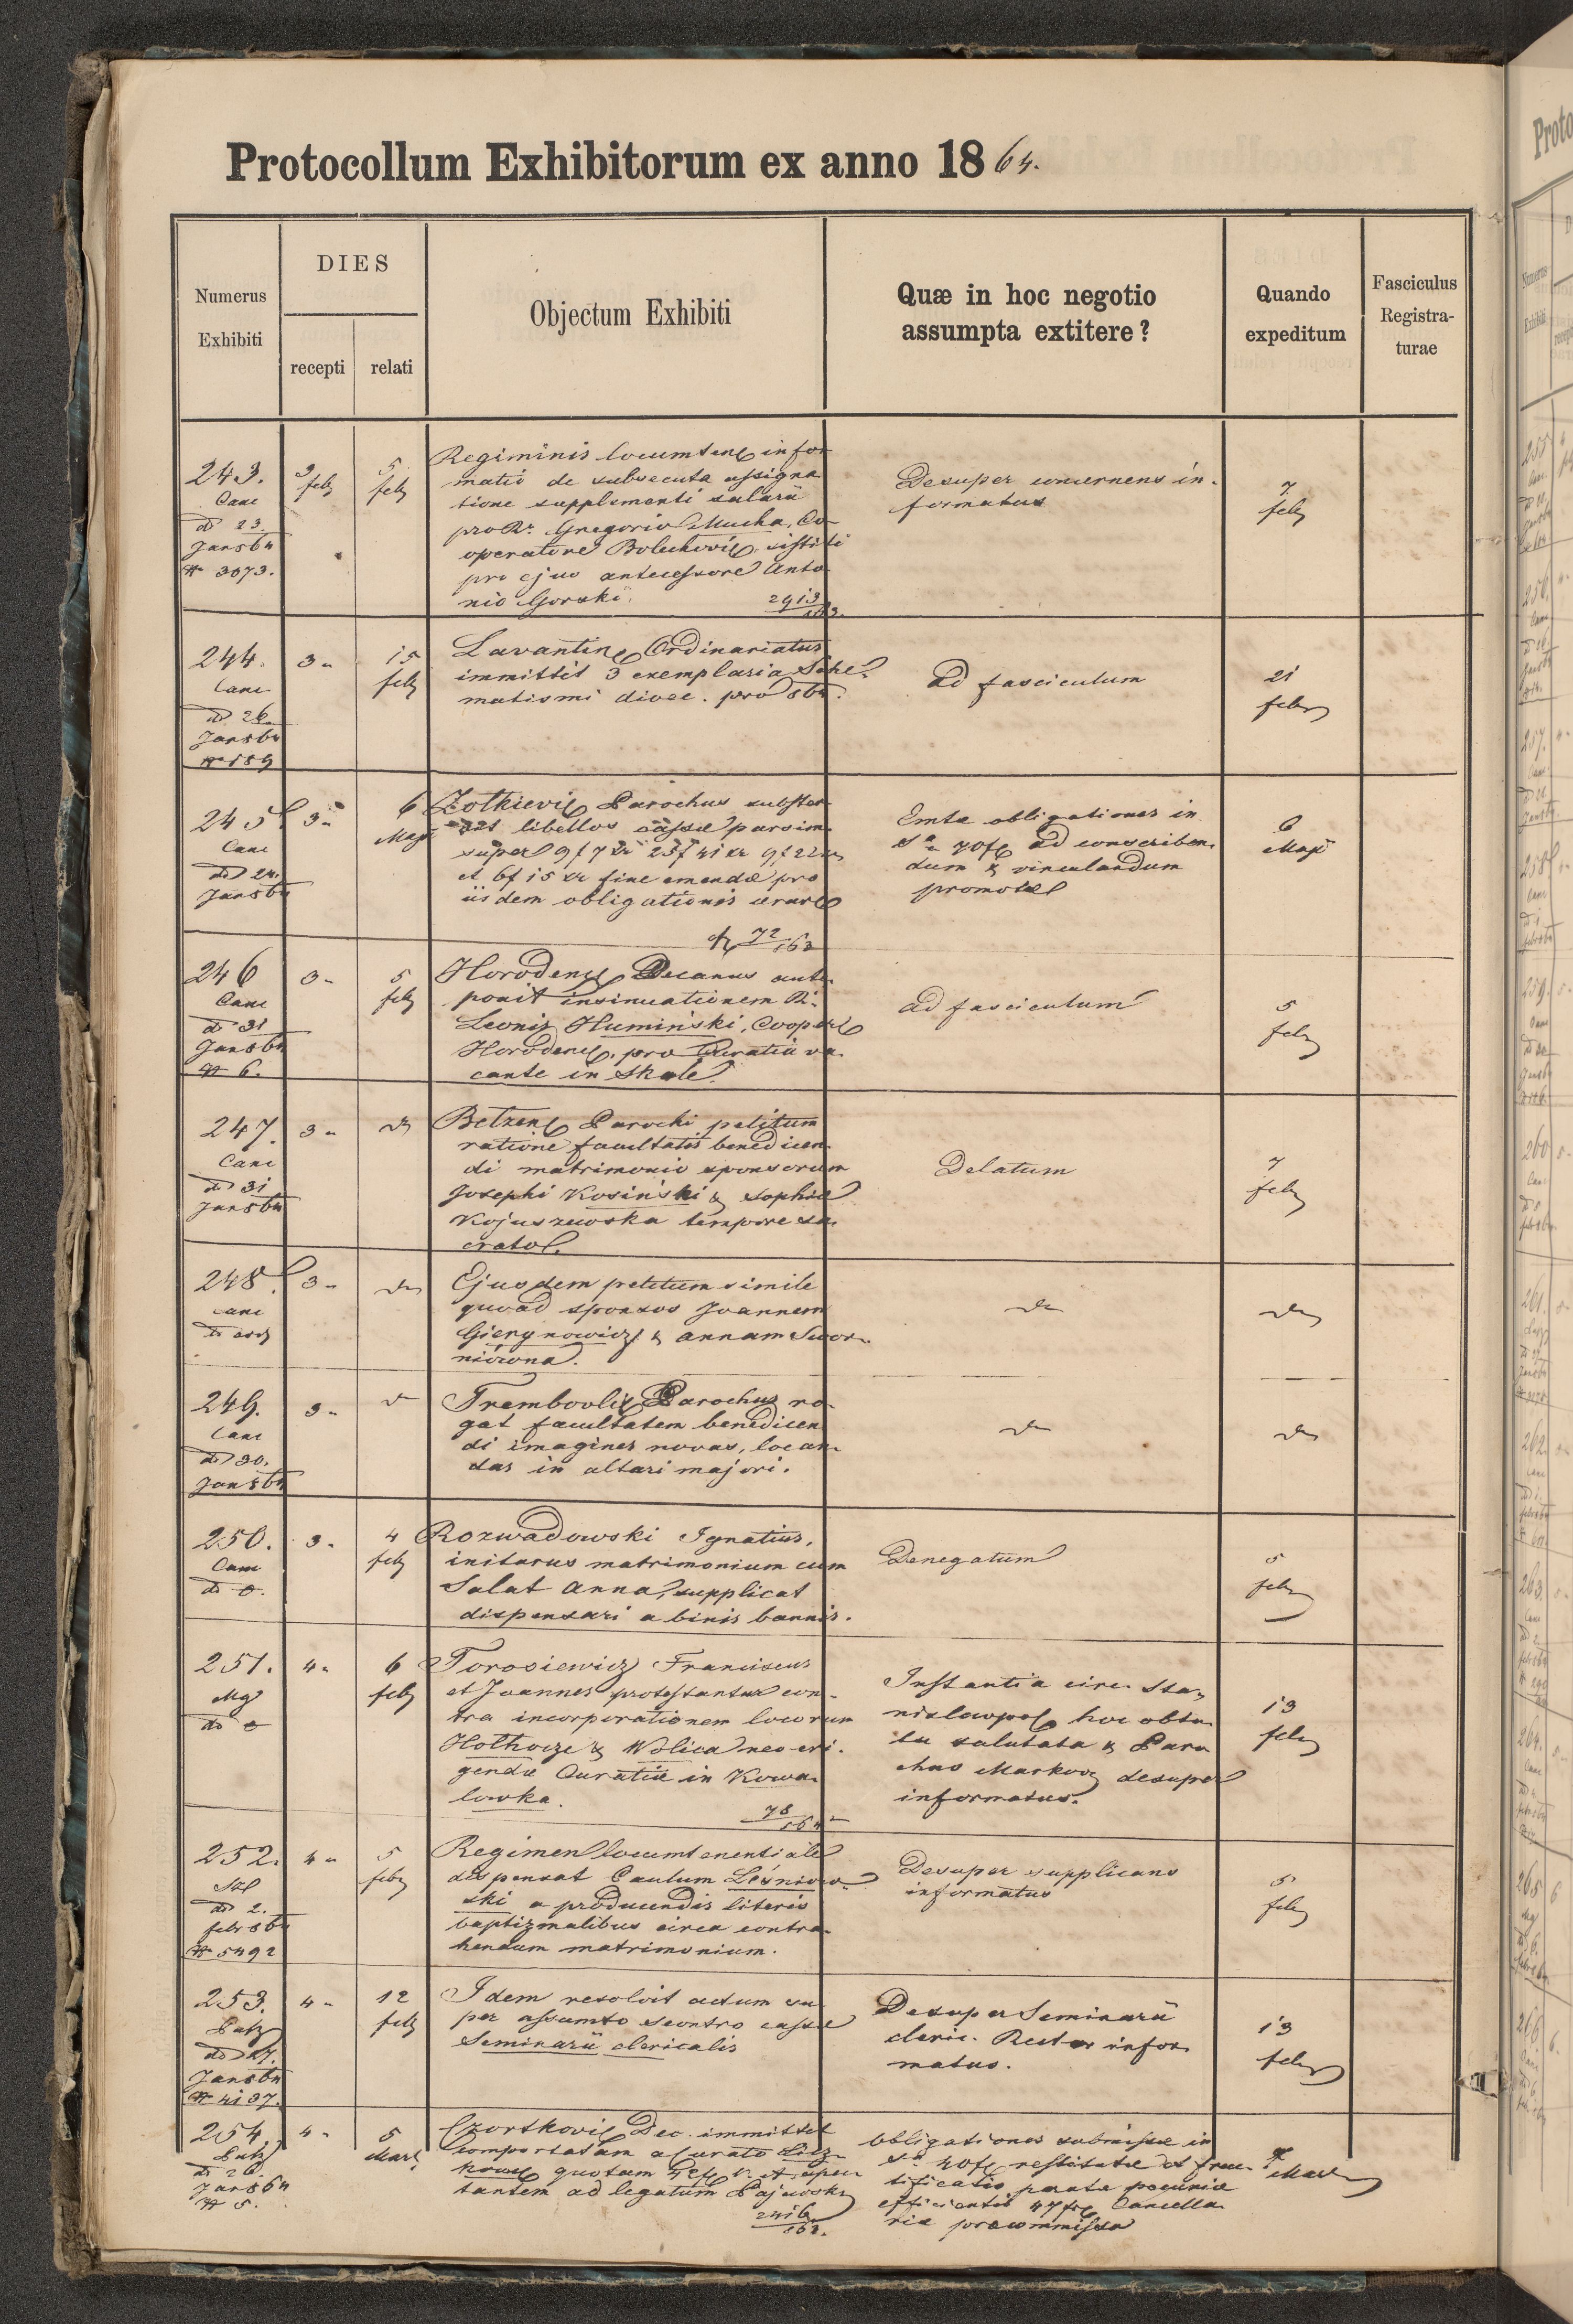 Protocollum Exhibitorum ex anno 1864.
Numerus
Exhibiti
DIES
recepti
relati
Objectum Exhibiti
Quæ in hoc negotio
assumpta extitere?
Quando
expeditum
Fasciculus
Registra-
turae
243.
Canc
d 23.
Jan 864
N 3073.
3
feb
5
feb
Regiminis locumten infor
matio de subsecuta assigna
tione supplementi salarii
pro R. Gregorio Mucha, Co-
operatore Bolechovi, sistiti
pro ejus antecessore Anto
nio Gorski.
2913
863.
Desuper concernens in-
formatus
7
feb
244.
Canc
d 26.
Jan 864
N 189
3 "
15
feb
Lavantin Ordinariatus
immittit 3 exemplaria Sche-
matismi dioec. pro 864.
ad fasciculum
21
febr
245.
Canc
d 24.
Jan 864
3 "
6
Maji
Zolkievi Parochus subster
nit libellos cassæ parsim.
super 9f 7 xr 25f 41 xr 9f 22 xr
et 6f 15 xr fine emendæ pro
iisdem obligationis
72
863
Emtæ obligationes in
Sa 70f ad conscriben-
dum & vinculandum
promotæ
6
Maji
246
Canc
d 31
Jan 864
N 6.
3 "
5
feb
Horoden Decanus ante-
ponit insinuationem R.
Leonis Humiński, Cooper
Horoden. pro Curatia va-
cante in Skale.
ad fasciculum
5
feb
247.
Canc
d 31
Jan 864
3 "
do
Belzen Parochi petitum
ratione facultatis benedicen-
di matrimonio sponsorum
Josephi Kosiński & Sophiæ
Kojuszewska tempore sa-
crato.
Delatum
7
feb
248.
Canc
d eod
3 "
do
Ejusdem petitum simile
quoad sponsos Joannem
Gierynowicz & Annam Swor-
niówna.
do
do
249.
Canc
d 30.
Jan 864
3 "
do
Trembovli Parochus ro-
gat facultatem benedicen
di imagines novas, locan-
das in altari majori.
do
do
250.
Canc
d o.
3 "
4
feb
Rozwadowski Ignatius,
initurus matrimonium cum
Salat Anna, supplicat
dispensari a binis bannis.
Denegatum
5
feb
251.
Mg
d o
4 "
6
feb
Torosiewicz Franciscus
et Joannes protestantur con-
tra incorporationem locorum
Holhocze & Wolica neo-eri-
gendæ Curatiæ in Kowa-
lowka.
78
864
Instantia circ. Sta-
nislawpol hoc obtu-
tu salutata & Paro
chus Markov desuper
informatus.
13
feb
252.
d 2.
febr 864
N 5492
4 "
5
feb
Regimen locumtenentiale
dispensat Paulum Leśniow-
ski a producendis literis
baptizmalibus circa contra-
hendum matrimonium.
Desuper supplicans
informatus
5
feb
253.
d 27.
Jan 864
N 4137.
4 "
12
feb
Idem resolvit actum su-
per assumto scontro cassæ
Seminarii clericalis
Desuper Seminarii
cleric. Rector infor-
matus.
13
feb
254.
d 26.
Jan 864
N 5.
4 "
5
Mart
Czortkovi Dec. immittit
comportatam a Curato
quotam 42f
tantem ad legatum
2416
863.
Obligationes submissæ in
Sa 40f restitutæ et
paratæ pecuniæ
efficientis 47f Cancella-
riæ præcommissa
7
Mart